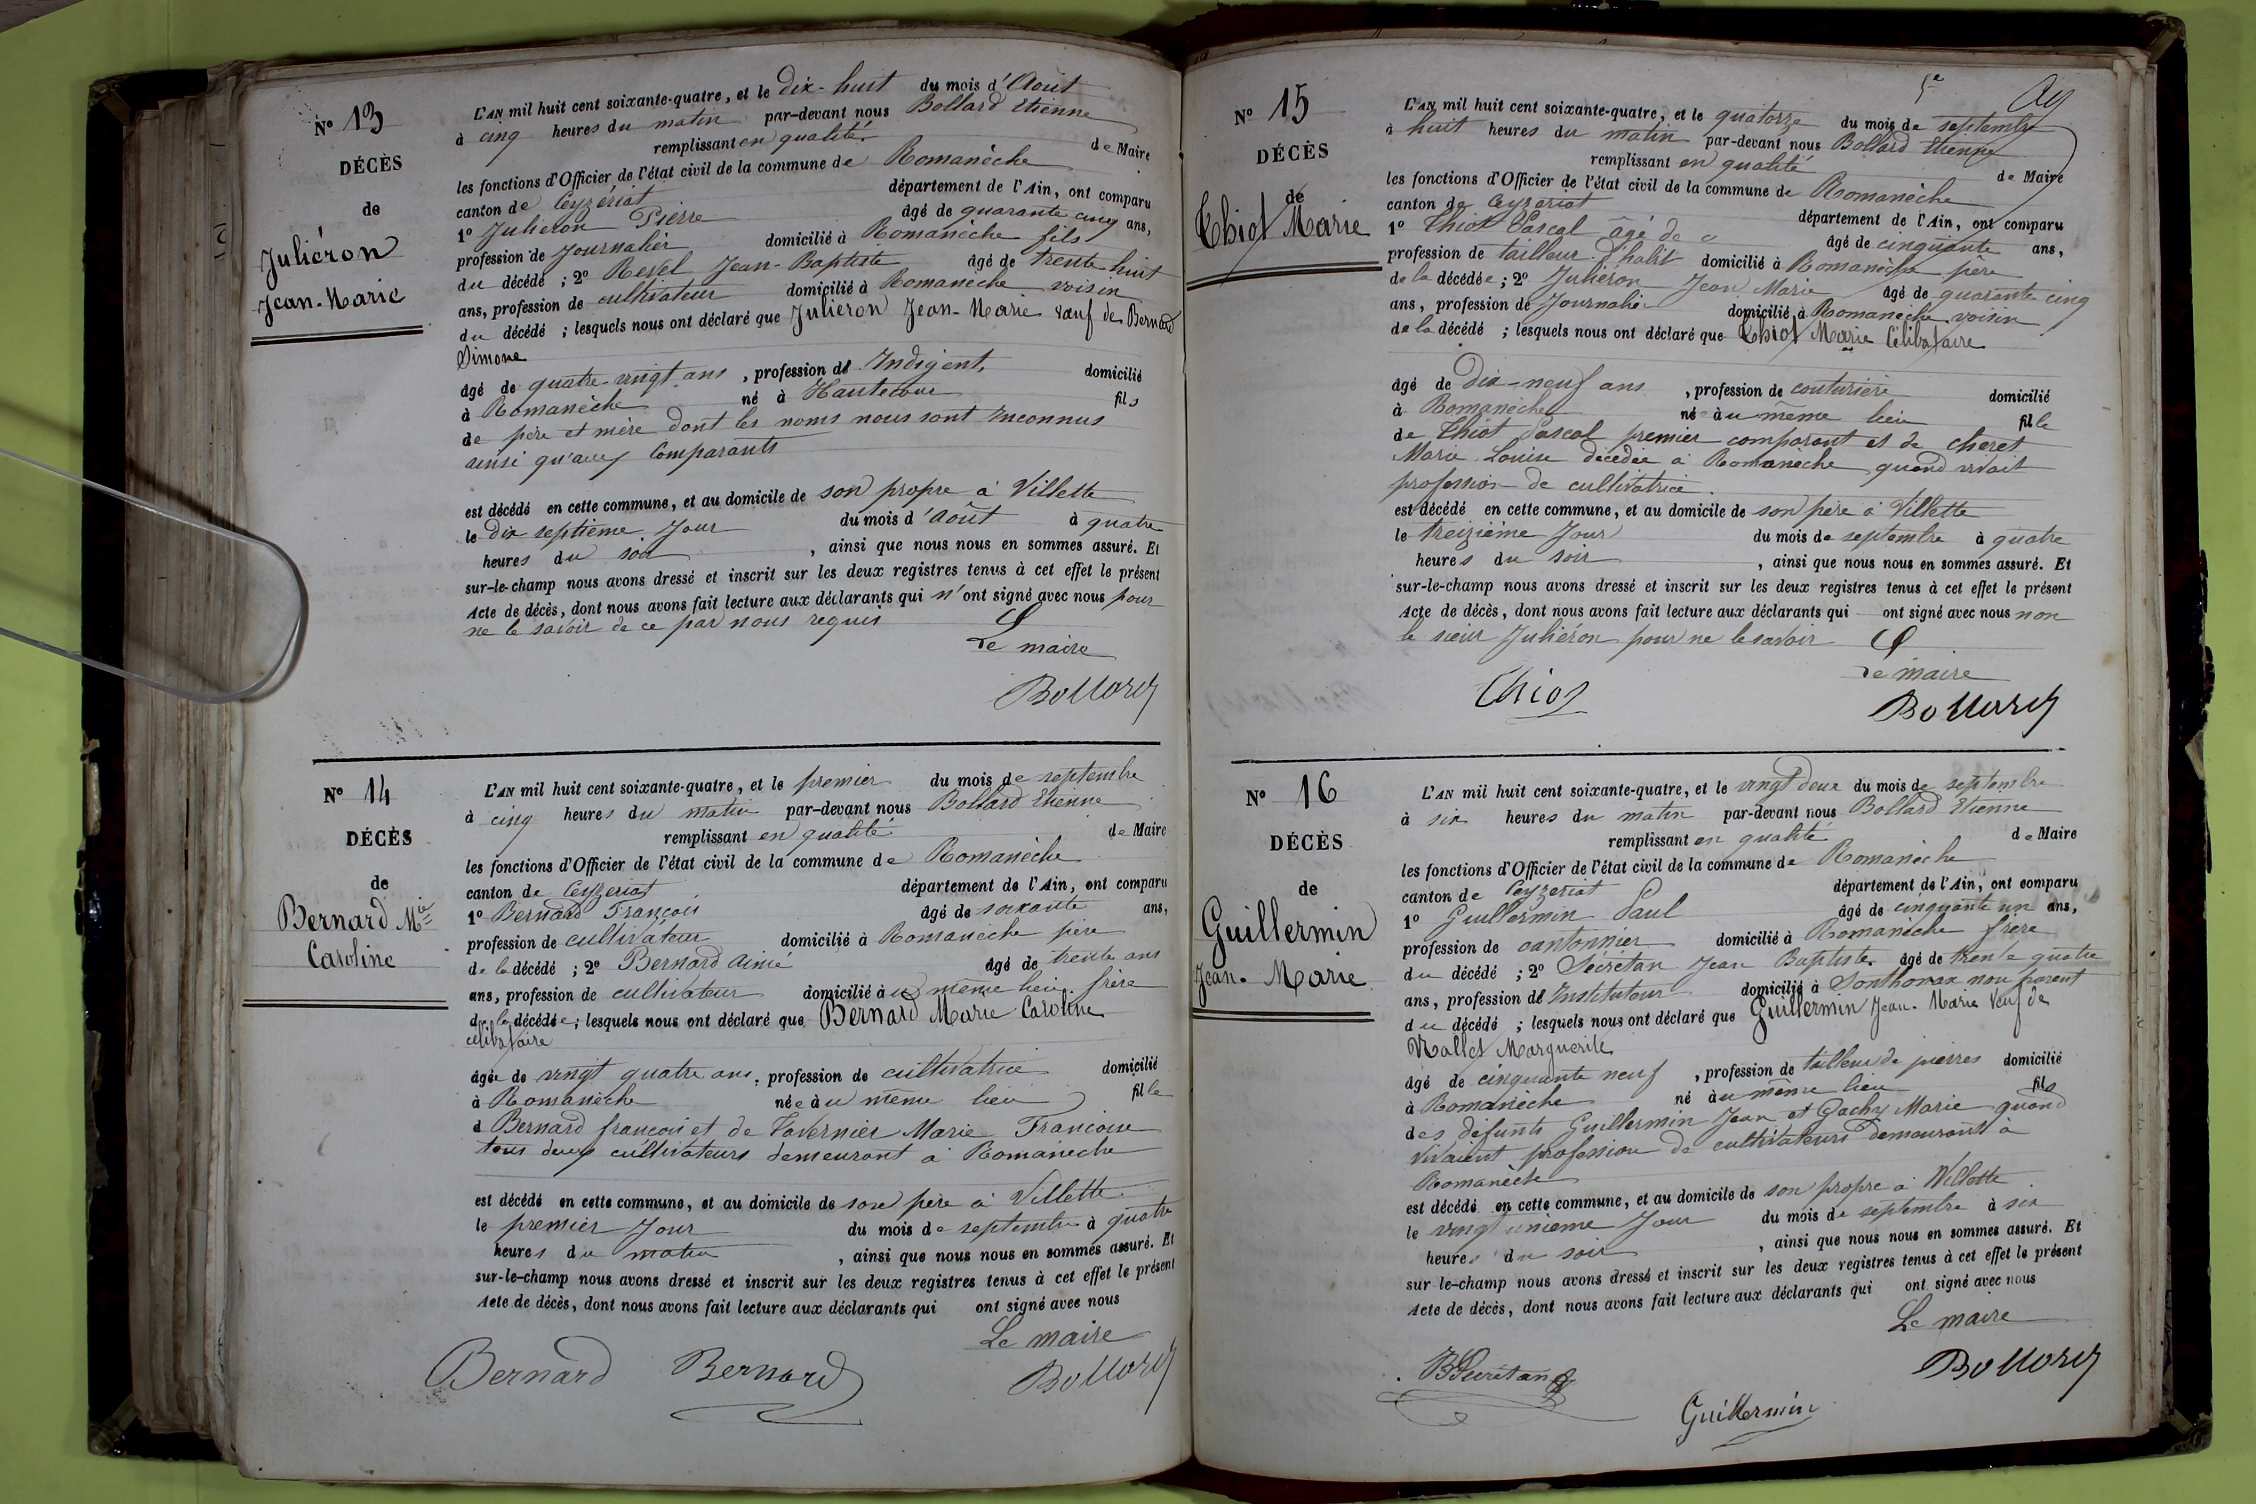 N° 13
DÉCÈS
de
Juliéron
Jean-Marie
L'AN mil huit cent soixante-quatre, et le dix-huit du mois d'Aout
à cinq heures du matin par-devant nous Bollard Etienne
remplissant en qualité de Maire
les fonctions d'Officier de l'état civil de la commune de Romanèche
canton de Ceyzériat département de l'Ain, ont comparu
1° Julieron Pierre âgé de quarante cinq ans,
profession de Journalier domicilié à Romanèche fils
du décédé ; 2° Revel Jean-Baptiste âgé de trente huit
ans, profession de cultivateur domicilié à Romanèche voisin
du décédé ; lesquels nous ont déclaré que Julieron Jean-Marie veuf de Bernard
Simone
âgé de quatre-vingt ans, profession d' Indigent, domicilié
à Romanèche né à Hautecour fils
de père et mère dont les noms nous sont Inconnus
ainsi qu'aux Comparants
est décédé en cette commune, et au domicile de son propre à Villette
le Dix septième Jour du mois d'Août à quatre
heures du soir, ainsi que nous nous en sommes assuré. Et
sur-le-champ nous avons dressé et inscrit sur les deux registres tenus à cet effet le présent
Acte de décès, dont nous avons fait lecture aux déclarants qui n'ont signé avec nous pour
ne le savoir de ce par nous requis
Le maire
Bollard
N° 14
DÉCÈS
de
Bernard Mie
Caroline
L'AN mil huit cent soixante-quatre, et le premier du mois de septembre
à cinq heures du matin par-devant nous Bollard Etienne
remplissant en qualité de Maire
les fonctions d'Officier de l'état civil de la commune de Romanèche
canton de Ceyzeriat département de l'Ain, ont comparu
1° Bernard François âgé de soixante ans,
profession de cultivateur domicilié à Romanèche père
de la décédé ; 2° Bernard Aimé âgé de trente ans
ans, profession de cultivateur domicilié au même lieu frère
de la décédée ; lesquels nous ont déclaré que Bernard Marie Caroline
célibataire
âgée de vingt quatre ans, profession de cultivatrice domicilié
à Romanèche née au même lieu fille
d Bernard françois et de Tavernier Marie Francoise
tous deux cultivateurs demeurant à Romanèche
est décédé en cette commune, et au domicile de son père à Villette
le premier Jour du mois de septembre à quatre
heures du matin, ainsi que nous nous en sommes assuré. Et
sur-le-champ nous avons dressé et inscrit sur les deux registres tenus à cet effet le présent
Acte de décès, dont nous avons fait lecture aux déclarants qui ont signé avec nous
Le maire
Bernard Bernard Bollard
N° 15
DÉCÈS
de
Thiot Marie
L'AN mil huit cent soixante-quatre, et le quatorze du mois de septembre
à huit heures du matin par-devant nous Bollard Etienne
remplissant en qualité de Maire
les fonctions d'Officier de l'état civil de la commune de Romanèche
canton de Ceyzeriat département de l'Ain, ont comparu
1° Thiot Pascal âgé de âgé de cinquante ans,
profession de tailleur d'habit domicilié à Romanèche père
de la décédée ; 2° Juliéron Jean Marie âgé de quarante cinq
ans, profession de Journalier domicilié à Romanèche voisin
de la décédé ; lesquels nous ont déclaré que Thiot Marie Célibataire
âgé de Dix-neuf ans, profession de couturière domicilié
à Romanèche né au même lieu fille
de Thiot Pascal premier comparant et de Cheret
Marie Louise décédée à Romanèche quand vivait
profession de cultivatrice
est décédé en cette commune, et au domicile de son père à Villette
le treizième Jour du mois de septembre à quatre
heures du soir, ainsi que nous nous en sommes assuré. Et
sur-le-champ nous avons dressé et inscrit sur les deux registres tenus à cet effet le présent
Acte de décès, dont nous avons fait lecture aux déclarants qui ont signé avec nous non
le sieur Juliéron pour ne le savoir
Le maire
Thiot Bollard
N° 16
DÉCÈS
de
Guillermin
Jean-Marie
L'AN mil huit cent soixante-quatre, et le vingt deux du mois de septembre
à six heures du matin par-devant nous Bollard Etienne
remplissant en qualité de Maire
les fonctions d'Officier de l'état civil de la commune de Romanèche
canton de Ceyzeriat département de l'Ain, ont comparu
1° Guillermin Paul âgé de cinquante un ans,
profession de cantonnier domicilié à Romanèche frère
du décédé ; 2° Sécretan Jean Baptiste âgé de trente quatre
ans, profession d' Instituteur domicilié à Sonthonax non parent
du décédé ; lesquels nous ont déclaré que Guillermin Jean-Marie Veuf de
Nallet Marguerite
âgé de cinquante neuf, profession de tailleur de pierres domicilié
à Romanèche né au même lieu fils
des défunts Guillermin Jean et Gachy Marie quand
vivaient profession de cultivateurs demeurant à
Romanèche
est décédé en cette commune, et au domicile de son propre à Villette
le vingt unième Jour du mois de septembre à six
heures du soir, ainsi que nous nous en sommes assuré. Et
sur le-champ nous avons dressé et inscrit sur les deux registres tenus à cet effet le présent
Acte de décès, dont nous avons fait lecture aux déclarants qui ont signé avec nous
Le maire
BSecrétan Bollard
Guillermin